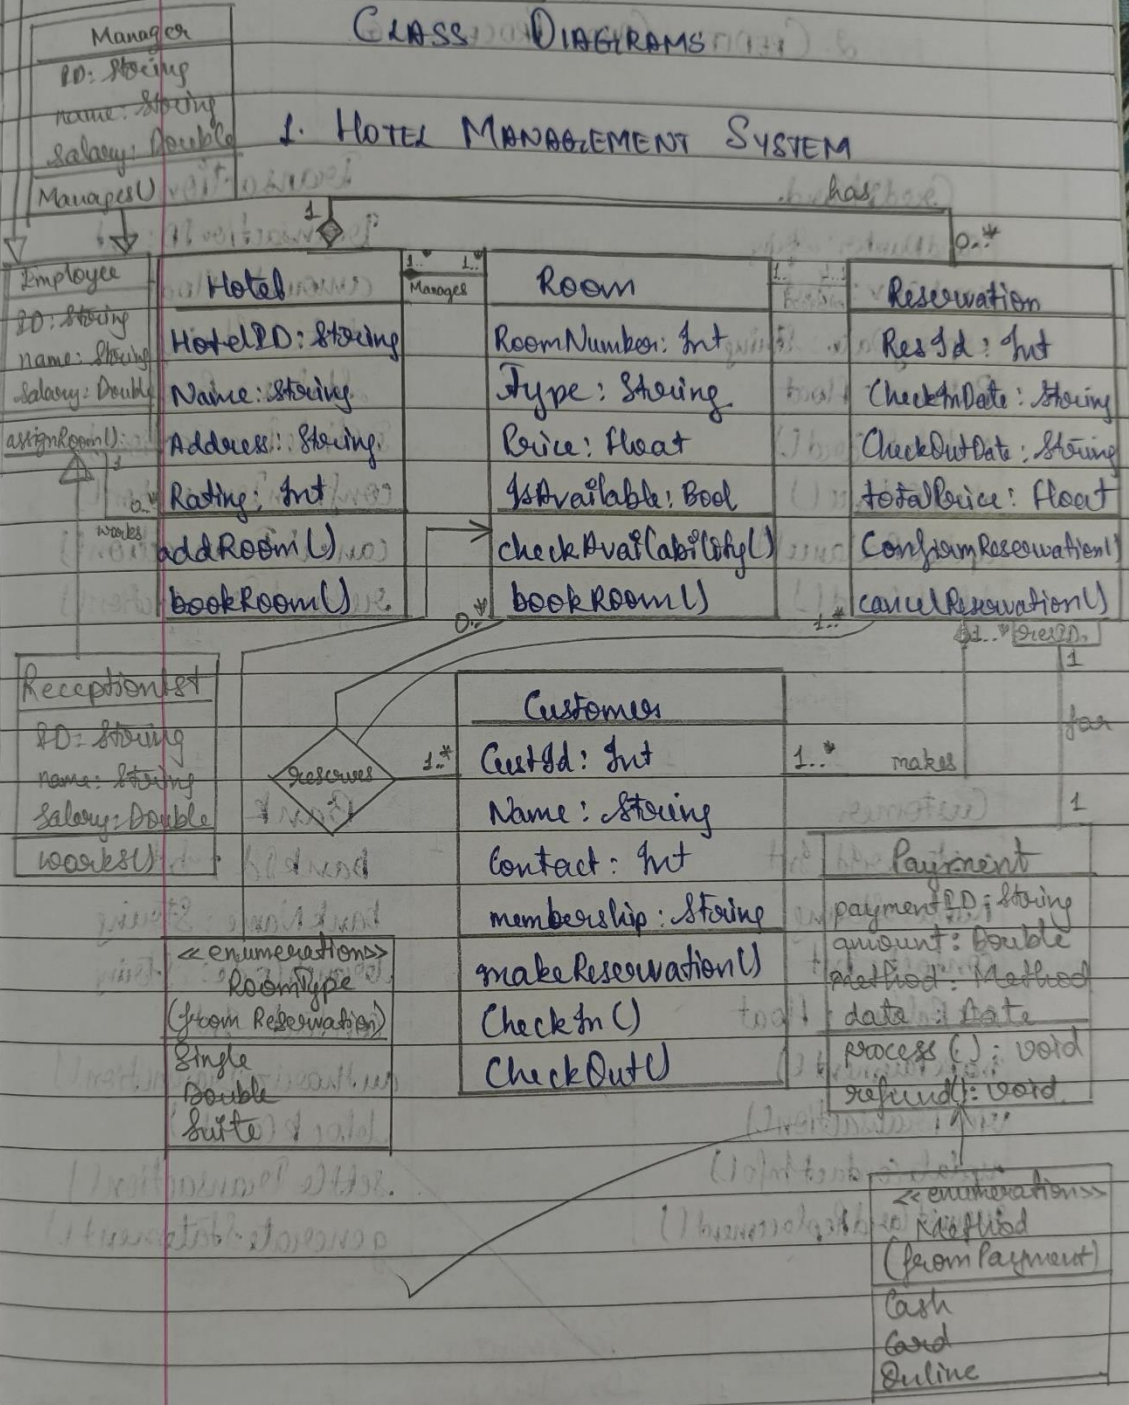 CLASS DIAGRAMS
1. HOTEL MANAGEMENT SYSTEM
Manager
ID: String
name: String
Salary: Double
Manages()
has
1
0..*
Employee
ID: String
name: String
Salary: Double
assignRoom()
1
0..*
works
Hotel
HotelID: String
Name: String
Address: String
Rating: Int
addRoom()
bookRoom()
1..* 1..*
Manages
Room
RoomNumber: Int
Type: String
Price: Float
IsAvailable: Bool
checkAvailability()
bookRoom()
Reservation
ResId: Int
CheckInDate: String
CheckOutDate: String
totalPrice: Float
ConfirmReservation()
cancelReservation()
0..*
1..*
1..*
resID
1
for
1
Receptionist
ID: String
name: String
Salary: Double
works()
reserves
1..*
Customer
CustId: Int
Name: String
Contact: Int
membership: String
makeReservation()
CheckIn()
CheckOut()
1..*
makes
Payment
paymentID: String
amount: Double
method: Method
date: Date
process(): void
refund(): void
<<enumerations>>
RoomType
(from Reservation)
Single
Double
Suite
<<enumerations>>
Method
(from Payment)
Cash
Card
Online